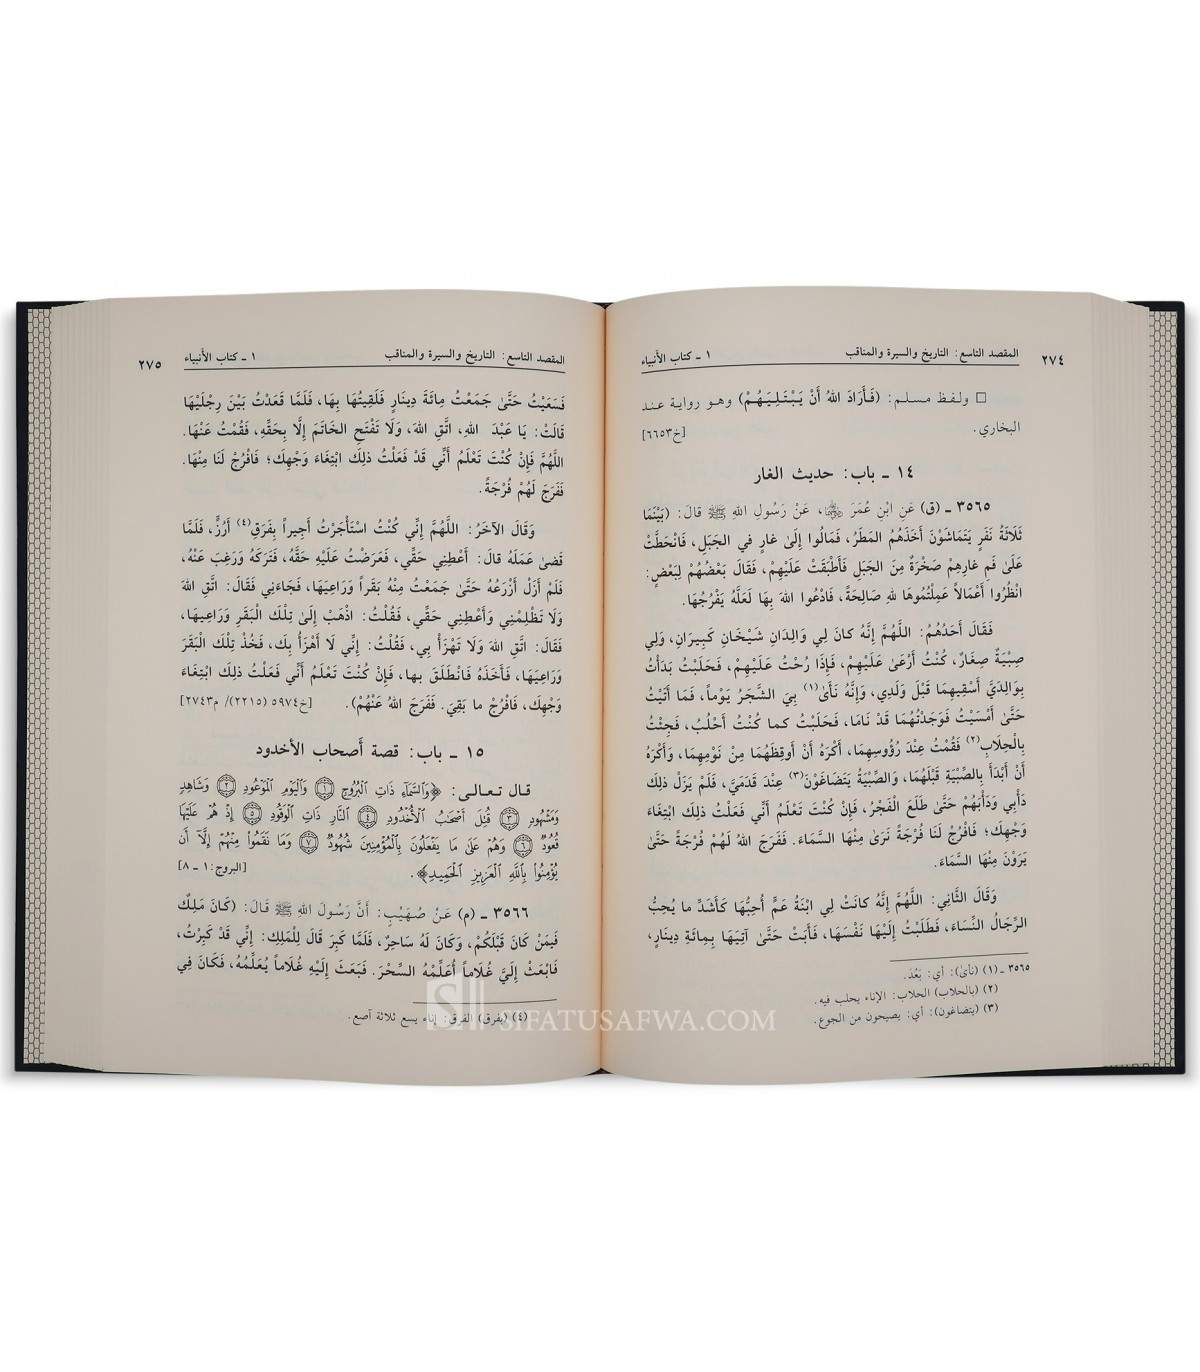 ٢٧٤
المقصد التاسع: التاريخ والسيرة والمناقب
١ ـ كتاب الأنبياء
□ ولفظ مسلم: (فَأَرَادَ اللهُ أَنْ يَبْتَلِيَهُمْ) وهو رواية عند
البخاري. [خ٦٦٥٣]
١٤ ـ باب: حديث الغار
٣٥٦٥ ـ (ق) عَنِ ابْنِ عُمَرَ ﵄، عَنْ رَسُولِ اللهِ ﷺ قالَ: (بَيْنَمَا
ثَلَاثَةُ نَفَرٍ يَتَمَاشَوْنَ أَخَذَهُمُ المَطَرُ، فَمَالُوا إِلَىٰ غارٍ في الجَبَلِ، فَانْحَطَّتْ
عَلَىٰ فَمِ غارِهِمْ صَخْرَةٌ مِنَ الجَبَلِ فَأَطْبَقَتْ عَلَيْهِمْ، فَقَالَ بَعْضُهُمْ لِبَعْضٍ:
انْظُرُوا أَعْمَالاً عَمِلْتُمُوهَا للهِ صَالِحَةً، فَادْعُوا اللهَ بِهَا لَعَلَّهُ يَفْرُجُهَا.
فَقَالَ أَحَدُهُمُ: اللَّهُمَّ إِنَّهُ كانَ لِي وَالِدَانِ شَيْخَانِ كَبِيرَانِ، وَلِي
صِبْيَةٌ صِغَارٌ، كُنْتُ أَرْعَىٰ عَلَيْهِمْ، فَإِذَا رُحْتُ عَلَيْهِمْ، فَحَلَبْتُ بَدَأْتُ
بِوَالِدَيَّ أَسْقِيهِمَا قَبْلَ وَلَدِي، وَإِنَّهُ نَأَىٰ(١) بِيَ الشَّجَرُ يَوْماً، فَمَا أَتَيْتُ
حَتَّىٰ أَمْسَيْتُ فَوَجَدْتُهُمَا قَدْ نَامَا، فَحَلَبْتُ كما كُنْتُ أَحْلُبُ، فَجِئْتُ
بِالْحِلَابِ(٢) فَقُمْتُ عِنْدَ رُؤُوسِهِمَا، أَكْرَهُ أَنْ أُوقِظَهُمَا مِنْ نَوْمِهِمَا، وَأَكْرَهُ
أَنْ أَبْدَأَ بِالصِّبْيَةِ قَبْلَهُمَا، وَالصِّبْيَةُ يَتَضَاغَوْنَ(٣) عِنْدَ قَدَمَيَّ، فَلَمْ يَزَلْ ذلِكَ
دَأْبِي وَدَأْبَهُمْ حَتَّىٰ طَلَعَ الْفَجْرُ، فَإِنْ كُنْتَ تَعْلَمُ أَنِّي فَعَلْتُ ذلِكَ ابْتِغَاءَ
وَجْهِكَ؛ فَافْرُجْ لَنَا فُرْجَةً نَرَىٰ مِنْهَا السَّمَاءَ. فَفَرَجَ اللهُ لَهُمْ فُرْجَةً حَتَّىٰ
يَرَوْنَ مِنْهَا السَّمَاءَ.
وَقَالَ الثَّانِي: اللَّهُمَّ إِنَّهُ كانَتْ لِي ابْنَةُ عَمٍّ أُحِبُّهَا كَأَشَدِّ ما يُحِبُّ
الرِّجَالُ النِّسَاءَ، فَطَلَبْتُ إِلَيْهَا نَفْسَهَا، فَأَبَتْ حَتَّىٰ آتِيَهَا بِمِائَةِ دِينَارٍ،
٣٥٦٥ ـ (١) (نأىٰ): أي: بَعُدَ.
(٢) (بالحلاب) الحلاب: الإناء يحلب فيه.
(٣) (يتضاغون): أي: يصيحون من الجوع.
المقصد التاسع: التاريخ والسيرة والمناقب
١ ـ كتاب الأنبياء
٢٧٥
فَسَعَيْتُ حَتَّىٰ جَمَعْتُ مِائَةَ دِينَارٍ فَلَقِيتُهَا بِهَا، فَلَمَّا قَعَدْتُ بَيْنَ رِجْلَيْهَا
قالَتْ: يَا عَبْدَ اللهِ، اتَّقِ اللهَ، وَلَا تَفْتَحِ الخَاتَمَ إِلَّا بِحَقِّهِ، فَقُمْتُ عَنْهَا.
اللَّهُمَّ فَإِنْ كُنْتَ تَعْلَمُ أَنِّي قَدْ فَعَلْتُ ذلِكَ ابْتِغَاءَ وَجْهِكَ؛ فَافْرُجْ لَنَا مِنْهَا.
فَفَرَجَ لَهُمْ فُرْجَةً.
وَقَالَ الآخَرُ: اللَّهُمَّ إِنِّي كُنْتُ اسْتَأْجَرْتُ أَجِيراً بِفَرَقِ(٤) أَرُزٍّ، فَلَمَّا
قَضىٰ عَمَلَهُ قالَ: أَعْطِنِي حَقِّي، فَعَرَضْتُ عَلَيْهِ حَقَّهُ، فَتَرَكَهُ وَرَغِبَ عَنْهُ،
فَلَمْ أَزَلْ أَزْرَعُهُ حَتَّىٰ جَمَعْتُ مِنْهُ بَقَراً وَرَاعِيَهَا، فَجَاءَنِي فَقَالَ: اتَّقِ اللهَ
وَلَا تَظْلِمْنِي وَأَعْطِنِي حَقِّي، فَقُلْتُ: اذْهَبْ إِلَىٰ تِلْكَ الْبَقَرِ وَرَاعِيهَا،
فَقَالَ: اتَّقِ اللهَ وَلَا تَهْزَأْ بِي، فَقُلْتُ: إِنِّي لَا أَهْزَأُ بِكَ، فَخُذْ تِلْكَ الْبَقَرَ
وَرَاعِيَهَا، فَأَخَذَهُ فَانْطَلَقَ بِها، فَإِنْ كُنْتَ تَعْلَمُ أَنِّي فَعَلْتُ ذلِكَ ابْتِغَاءَ
وَجْهِكَ، فَافْرُجْ ما بَقِيَ. فَفَرَجَ اللهُ عَنْهُمْ). [خ٥٩٧٤ (٢٢١٥)/ م٢٧٤٣]
١٥ ـ باب: قصة أصحاب الأخدود
قال تعالى: ﴿وَٱلسَّمَآءِ ذَاتِ ٱلْبُرُوجِ ١ وَٱلْيَوْمِ ٱلْمَوْعُودِ ٢ وَشَاهِدٍ
وَمَشْهُودٍ ٣ قُتِلَ أَصْحَٰبُ ٱلْأُخْدُودِ ٤ ٱلنَّارِ ذَاتِ ٱلْوَقُودِ ٥ إِذْ هُمْ عَلَيْهَا
قُعُودٌ ٦ وَهُمْ عَلَىٰ مَا يَفْعَلُونَ بِٱلْمُؤْمِنِينَ شُهُودٌ ٧ وَمَا نَقَمُوا۟ مِنْهُمْ إِلَّآ أَن
يُؤْمِنُوا۟ بِٱللَّهِ ٱلْعَزِيزِ ٱلْحَمِيدِ﴾. [البروج: ١ ـ ٨]
٣٥٦٦ ـ (م) عَنْ صُهَيْبٍ: أَنَّ رَسُولَ اللهِ ﷺ قَالَ: (كَانَ مَلِكٌ
فِيمَنْ كَانَ قَبْلَكُمْ، وَكَانَ لَهُ سَاحِرٌ، فَلَمَّا كَبِرَ قَالَ لِلْمَلِكِ: إِنِّي قَدْ كَبِرْتُ،
فَابْعَثْ إِلَيَّ غُلَاماً أُعَلِّمْهُ السِّحْرَ. فَبَعَثَ إِلَيْهِ غُلَاماً يُعَلِّمُهُ، فَكَانَ فِي
(٤) (بفرق) الفرق: إناء يسع ثلاثة آصع.
SIFATUSAFWA.COM